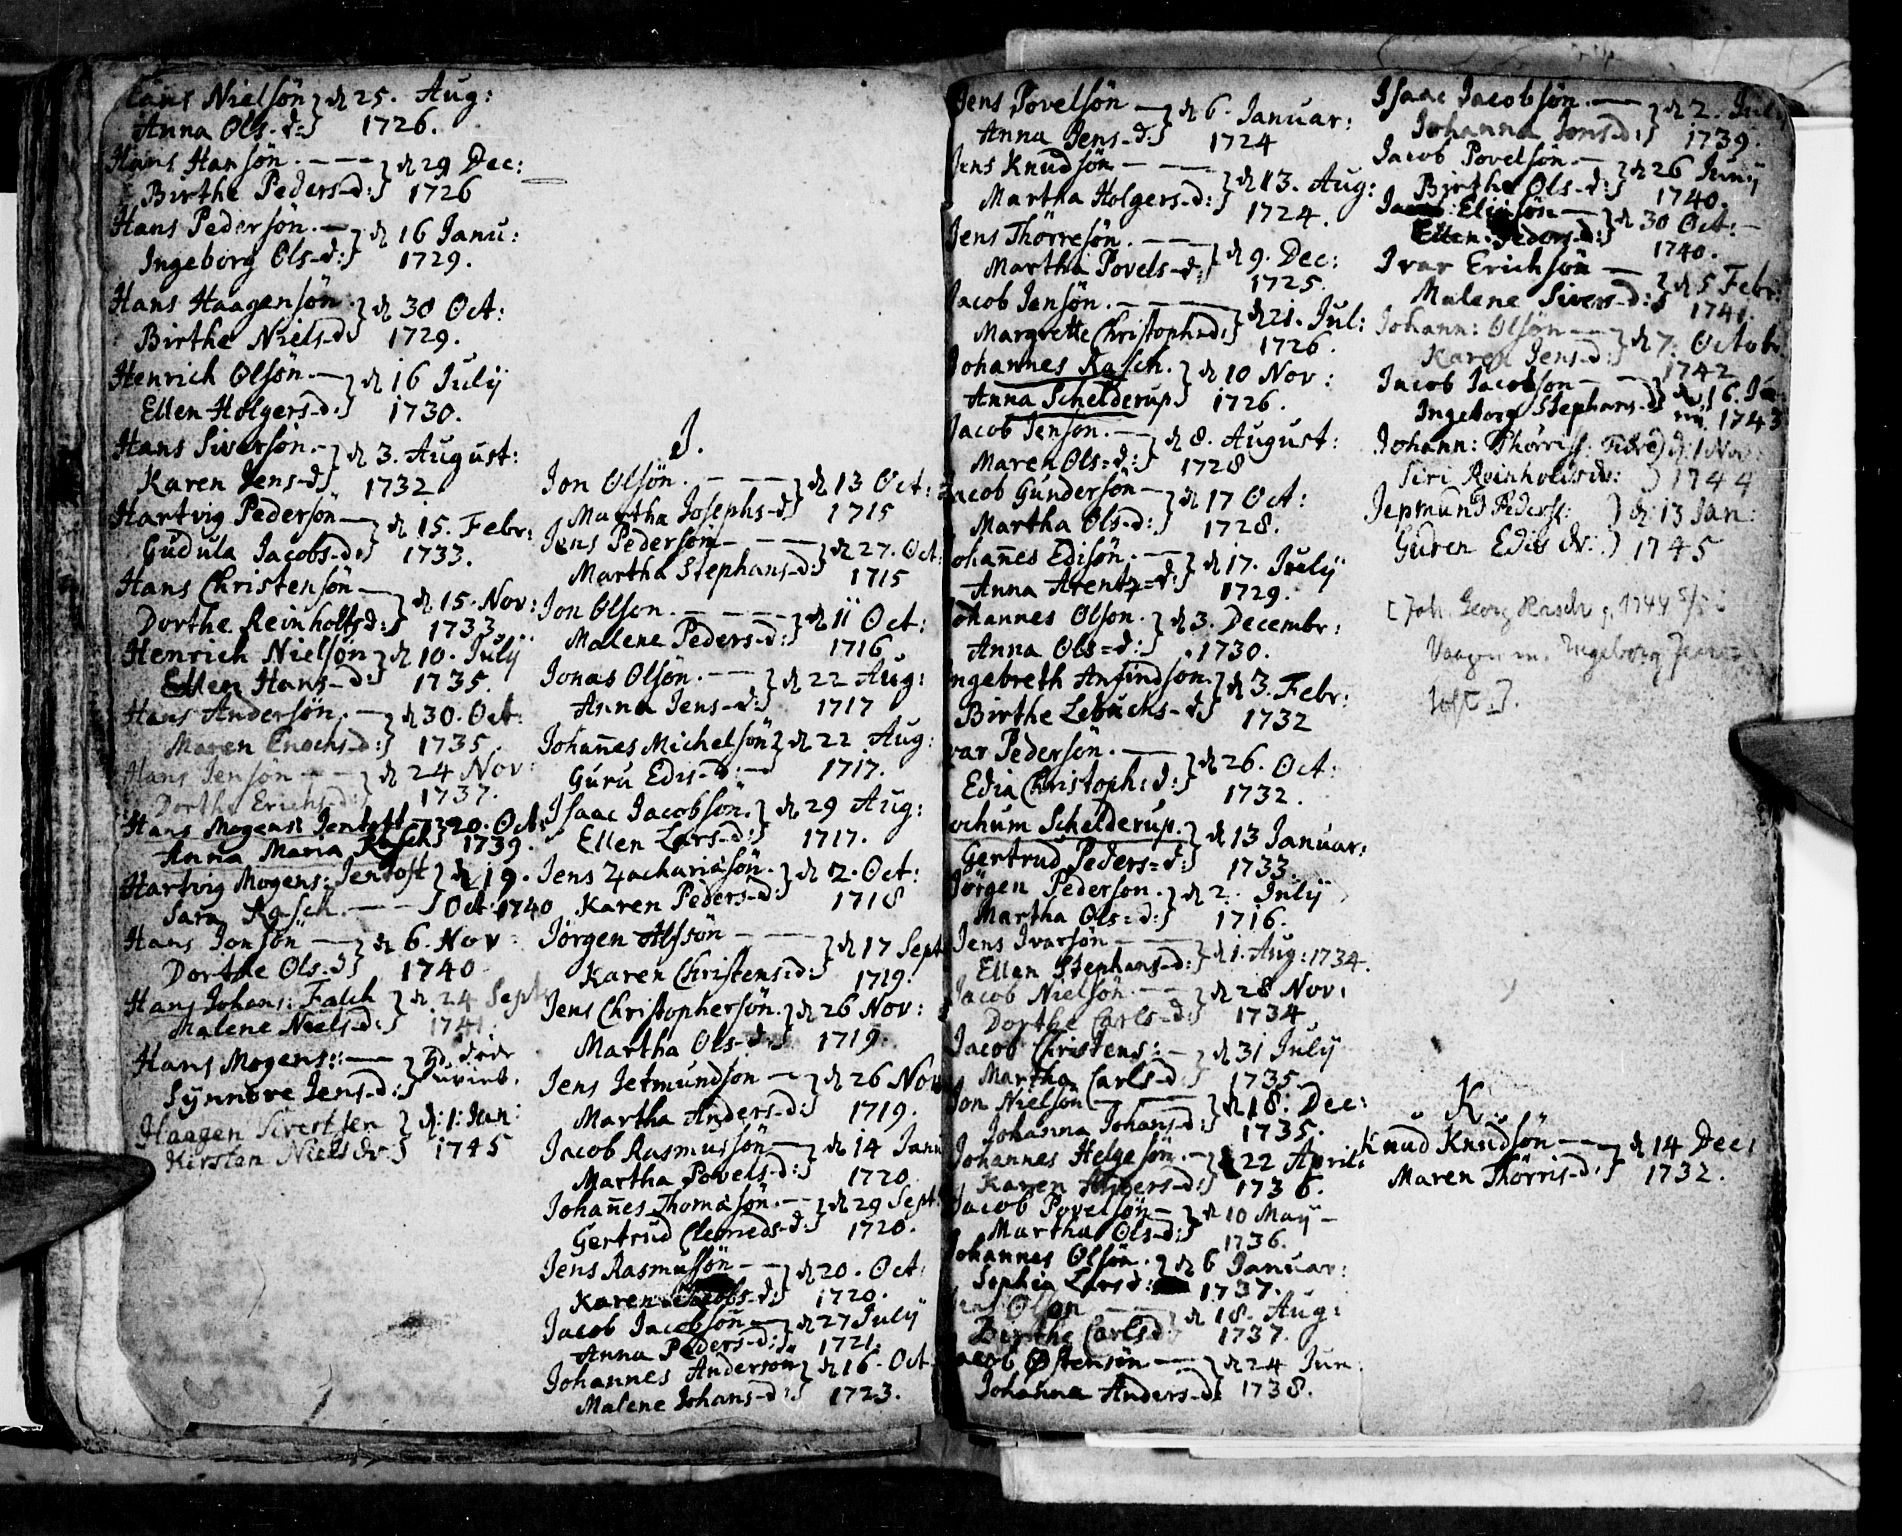 Hans Nielsön } d 25. Aug:
Anna Ols-d:} 1726.
Hans Hansön. --- } d 29 Dec:
Birthe Peders-d:} 1726
Hans Pedersön. — } d 16 Janu:
Ingeborg Ols-d:} 1729.
Hans Haagensön.} d 30 Oct:
Birthe Niels-d 1729.
Henrich Olsön.— } d 16 Julÿ
Ellen Holgers-d:} 1730.
Hans Siversön.- } d 3. August:
Karen Jens-d} 1732.
Hartvig Pedersön— } d 15. Febr:
Gudula Jacobs-d:} 1733.
Hans Christensön— } d 15. Nov:
Dorthe Reinholtsd:} 1733
Henrich Nielsön } d 10. Julÿ
Ellen Hans-d:} 1735.
Hans Andersön. — } d 30. Oct:
Maren Enochs-d:} 1735.
Hans Jensön - - } d 24 Nov:
Dorthe Erichs-d:} 1737.
Hans Mogens: Jentoft } d 20. Oct:
Anna Maria Rasch} 1739.
Hartvig Mogens: Jentoft } d 19.
Sara Rasch. — } Oct: 1740
Hans Jonsön — } d 6. Nov:
Dorthe Ols-d} 1740
Hans Johans: Falch } d 24 Sept
Malene Niels-d:} 1741.
Hans Mogens:: —
Sÿnnöve Jens-d:}
Haagen Sivertsen } d: 1: Jan:
Kirsten Niels dr } 1745
J.
Jon Olsön. - - - } d 13 Oct:
Martha Josephs-d} 1715
Jens Pedersön - - - } d 27. Oct:
Martha Stephans-d:} 1715
Jon Olson. - - - } d 11 Oct:
Malene Peders-d:} 1716
Jonas Olsön. - - } d 22 Aug:
Anna Jens-d:} 1717
Johanes Michelsön } d 22 Aug:
Guru Edis-d: - } 1717.
Isaac Jacobsön. } d 29 Aug:
Ellen Lars-d:} 1717.
Jens Zachariasön. } d 2. Oct:
Karen Peders-d:} 1718
Jörgen Alfsön - - - } d 17 Sept
Karen Christens:d:} 1719.
Jens Christophersön. } d 26 Nov:
Martha Ols-d:} 1719.
Jens Jetmundson — } d 26 Nov
Martha Anders-d:} 1719.
Jacob Rasmussön— } d 14 Janu
Martha Povels-d:} 1720
Johanes Thomasön. — } d 29 Sept:
Gertrud Clemeds-d:} 1720.
Jens Rasmusön - - } d 20. Oct:
Karen Jacobs-d:} 1720.
Jacob Jacobsön— } d 27 Julÿ
Anna Peders-d:} 1721.
Johannes Andersön } d 16. Oct
Malene Johans-d:} 1723.
Jens Povelsön — } d 6. Januar:
Anna Jens-d:} 1724
Jens Knudsön - - } d 13. Aug:
Martha Holgers-d:} 1724.
Jens Thörresön. - - } d 9. Dec:
Martha Povels-d:} 1725.
Jacob Jensön. - - - } d 21. Jul:
Margrette Christoph:d:} 1726.
Johannes Rasch. } d 10 Nov:
Anna Schelderup} 1726.
Jacob Jenson. — } d 8. August:
Maren Ols=d:} 1728
Jacob Gundersön— } d 17 Oct:
Martha Ols-d:} 1728.
Johanes Edisön. — } d 17. Julÿ
Anna Arentz=d:} 1729.
Johannes Olson. } d 3. Decembr:
Anna Ols=d:} 1730.
Ingebreth Anfindson. } d 3. Febr:
Birthe Lebuchs-d:} 1732
Ivar Pedersön. — } d 26. Oct:
Edia Christoph:d:} 1732.
Jochum Schelderup. } d 13 Januar:
Gertrud Peders=d:} 1733.
Jörgen Pederson. } d 2. Julÿ
Martha Ols=d:} 1716.
Jens Ivarsön - - -
Ellen Stephans-d:} d 1. Aug: 1734.
Jacob Nielsön. - - } d 28 Nov:
Dorthe Carls-d:} 1734
Jacob Christens: - } d 31 Julÿ
Martha Carls-d:} 1735
Jon Nielson - - - } d 18. Dec:
Johanna Johans-d:} 1735.
Johannes Helgesön. — } 22 April:
Karen Anders-d:} 1736.
Jacob Povelsön— } d 10 Maÿ -
Martha Ols-d:} 1736.
Johannes Olsön. } d 6 Januar:
Sophia Lars d: 1737.
Jens Olson - - - } d 18. Aug:
Birthe Carlsd: 1737.
Jacob Östensön. — } d 24 Jun
Johanna Anders-d: 1738.
Isaac Jacobsön. — } d 2. July
Johanna Jons-d:} 1739.
Jacob Povelsön. — } d 26 Junÿ
Birthe Ols-d:} 1740.
Jacob: Eliasön — } d 30 Oct: -
Ellen: Peders-d:} 1740.
Ivar Erichsön — } d 5 Febr:
Malene Sivers-d:} 1741.
Johann: Olsön - - } d 7. Octobr
Karen Jens-d:} 1742
Jacob Jacobson - - } d 16. Ja-
Ingeborg Stephans-d} nu. 1743
Johann: Thörris: } d: 1 Nov:
Siri Reinholds dr: ) 1744
Jepmund Peders: ) d: 13 Jan:
Guren Edis dr: ) 1745
[Joh. Georg Rasch 1744
Vaagen m. Ingeborg Jen-
toft].
K
Knud Knudsön — } d 14 Dec:
Maren Thörris-d:} 1732.